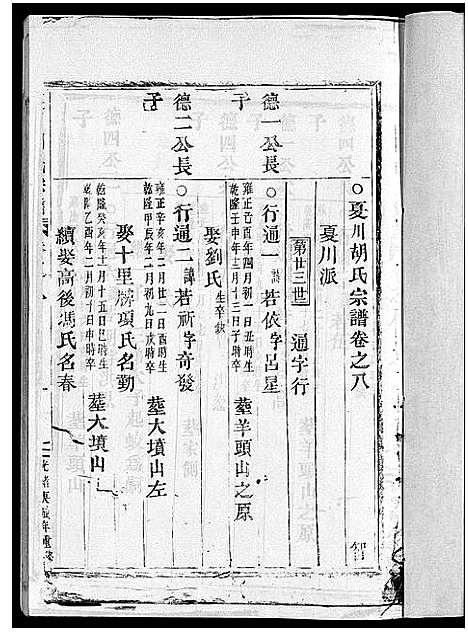 ○夏川胡氏宗譜卷之八
智
夏川派
第廿三世
通字行
德一公長子
○行通一諱若依字呂星
雍正己酉年四月初一日丑時生
乾隆壬申年十二月十三日子時卒
葬羊頭山之原
娶劉氏生卒缺
德二公長子
○行通二諱若祈字奇發
雍正辛亥年二月廿二日酉時生
乾隆甲辰年二月初九日亥時卒
葬大墳山左
娶十里牌項氏名勤
乾隆癸亥年十一月十五日巳時生
乾隆乙酉年二月初十日申時卒
葬大墳山
續娶高後馮氏名春
光緒庚辰年重修